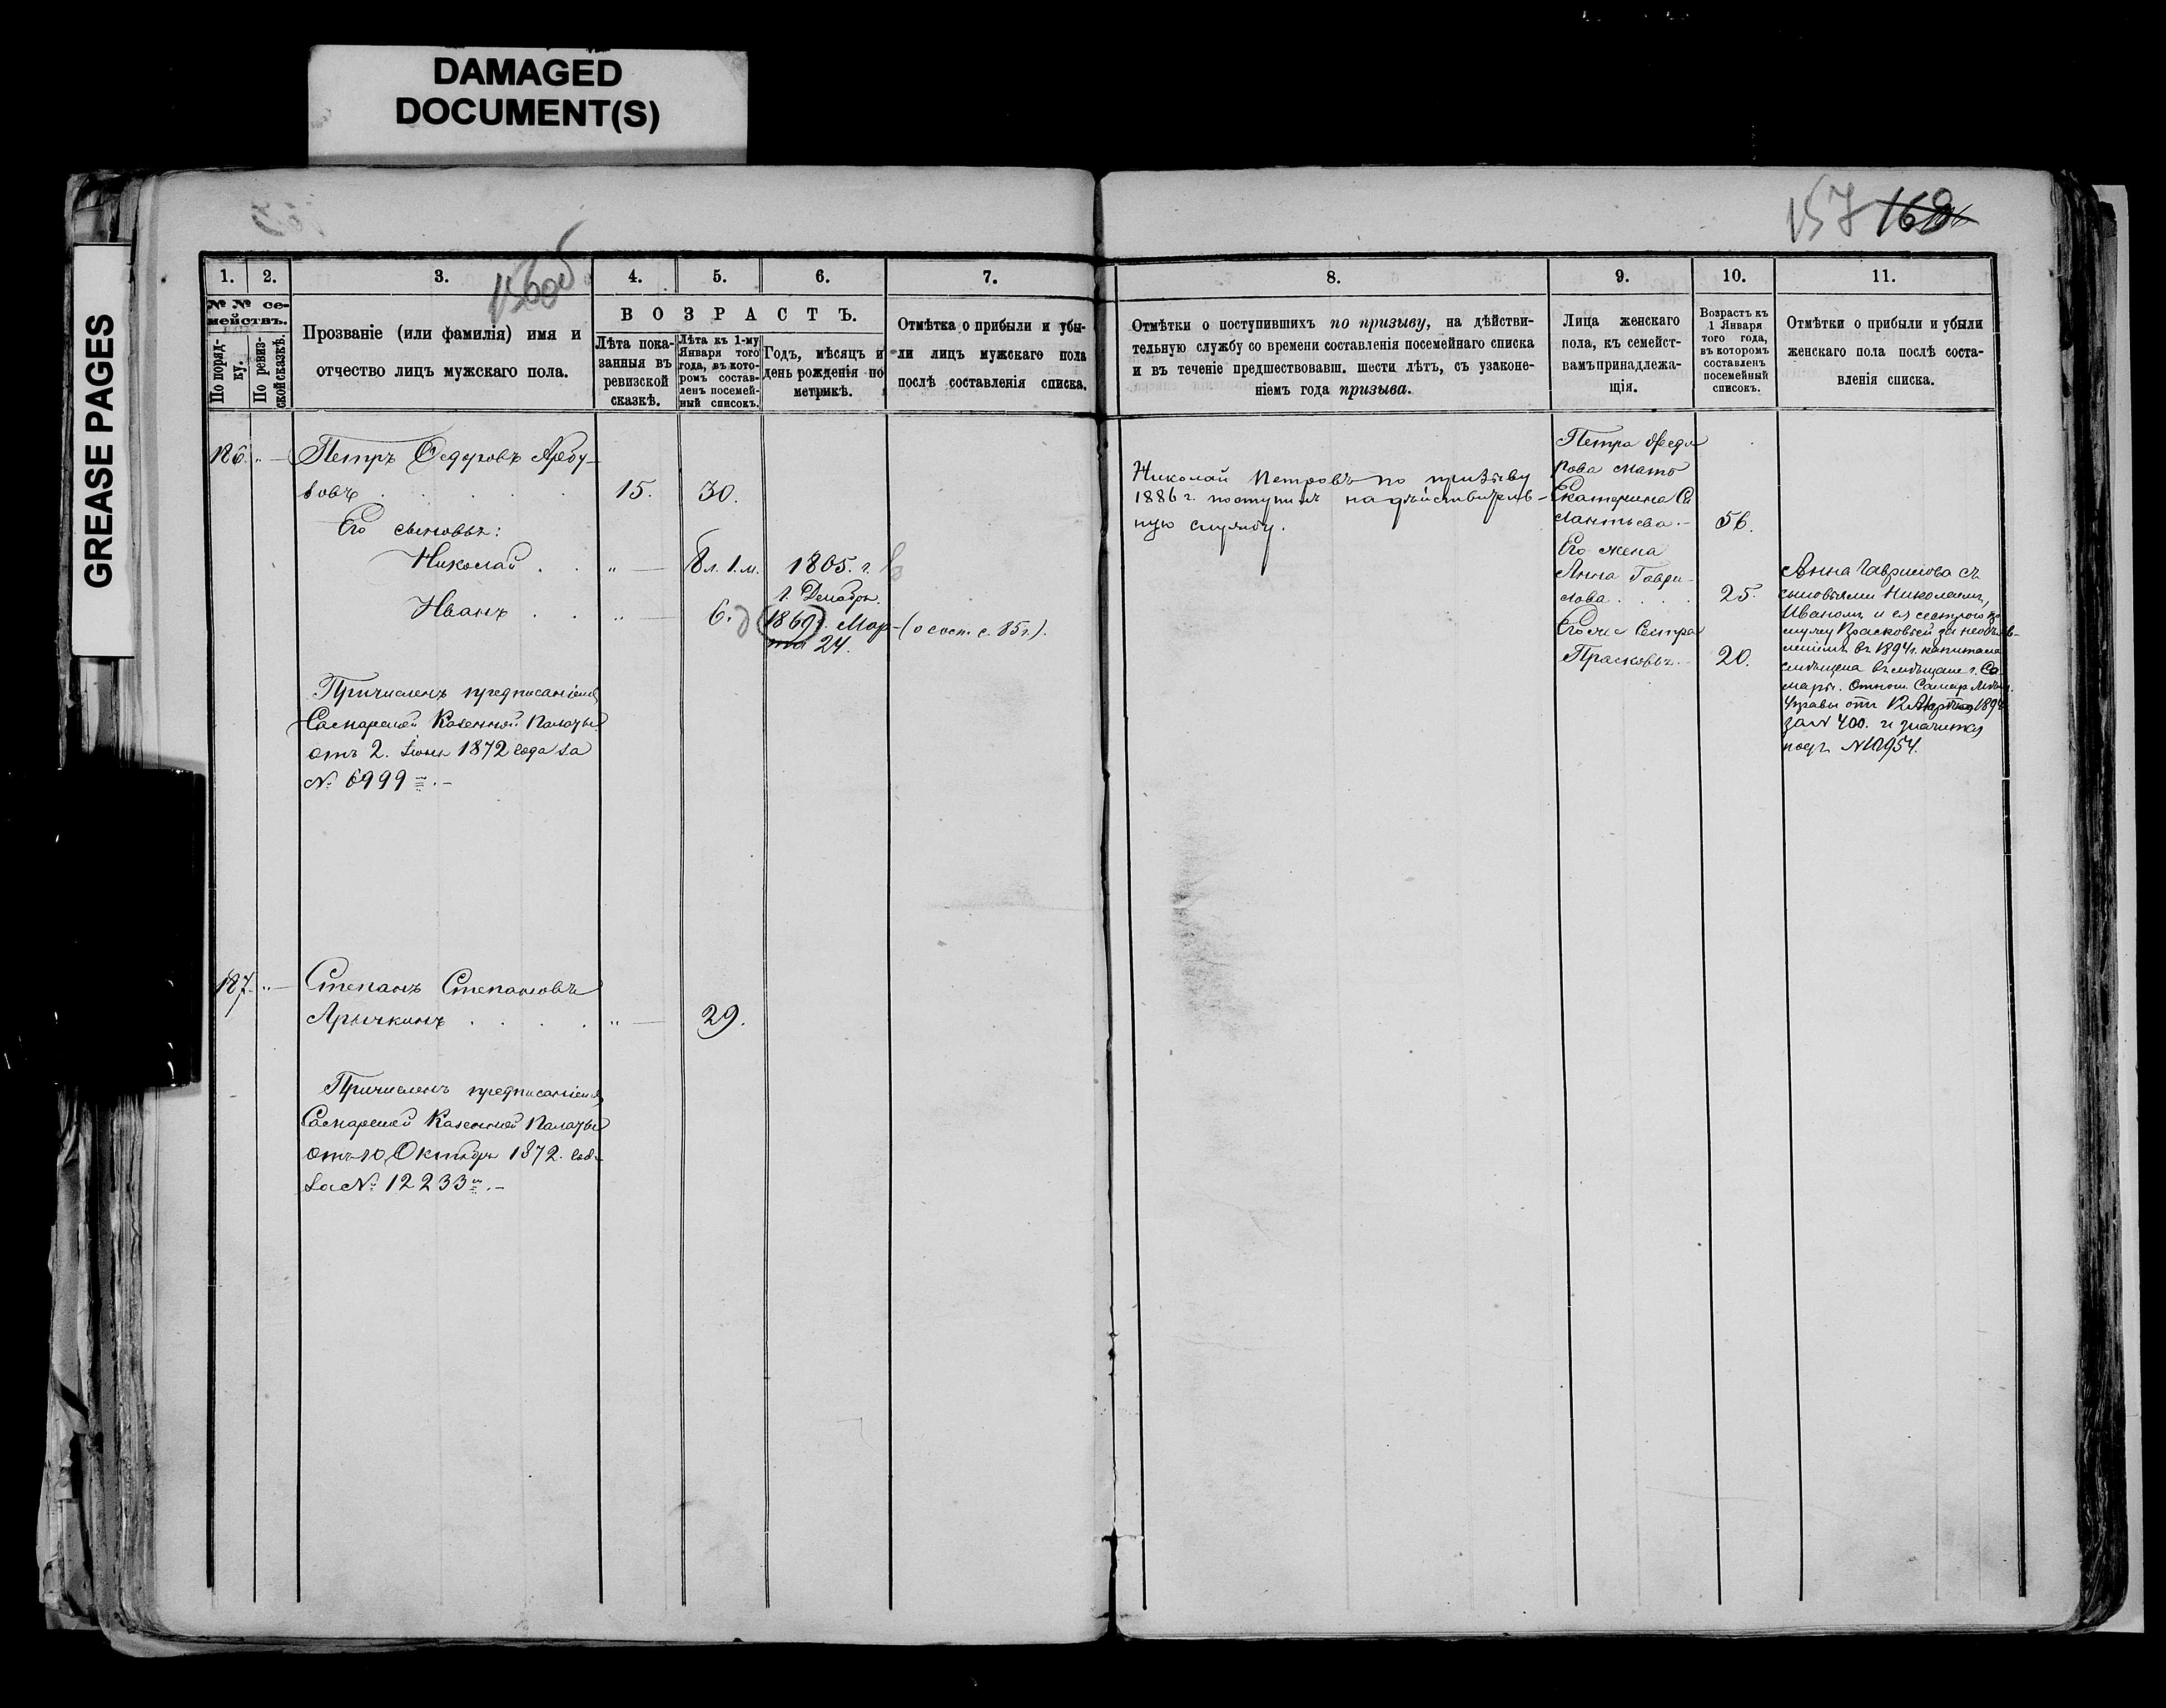 DAMAGED
DOCUMENT(S)
GREASE PAGES
157 169
156об
1.
2.
3.
4.
5.
6.
7.
8.
9.
10.
11.
№ № се-
мействъ.
По поряд-
ку.
По ревиз-
ской сказкѣ.
Прозваніе (или фамилія) имя и
отчество лицъ мужскаго пола.
ВОЗРАСТЪ.
Лѣта пока-
занныя въ
ревизской
сказкѣ.
Лѣта къ 1-му
Января того
года, въ кото-
ромъ состав-
ленъ посемей-
ный списокъ.
Годъ, мѣсяцъ и
день рожденія по
метрикѣ.
Отмѣтка о прибыли и убы-
ли лицъ мужскаго пола
послѣ составленія списка.
Отмѣтки о поступившихъ по призыву, на дѣйстви-
тельную службу со времени составленія посемейнаго списка
и въ теченіе предшествовавш. шести лѣтъ, съ узаконе-
ніемъ года призыва.
Лица женскаго
пола, къ семейст-
вамъ принадлежа-
щія.
Возрастъ къ
1 Января
того года,
въ которомъ
составленъ
посемейный
списокъ.
Отмѣтки о прибыли и убыли
женскаго пола послѣ соста-
вленія списка.
186. „ Петръ Ѳедоровъ Арбу-
зовъ . . . . 15. 30.
Его сыновья:
Николай . . „ 8 л. 1. м. 1865. г.
1. Декабр.
Иванъ . . „ 6. 1869 г. Мар-
та 24.
(о сост. с. 85 г.).
Причисленъ предписаніемъ
Самарской Казенной Палаты
отъ 2. Іюня 1872 года за
№ 6999 .-
Николай Петровъ по призыву
1886 г. поступилъ на дѣйствитель-
ную службу.
Петра Ѳедо
рова мать
Екатерина
лантьева.- 56.
Его жена
Анна Гаври-
лова . . . . 25.
Его же сестра
Прасковья.- 20.
Анна Гаврилова съ
сыновьями Николаемъ,
Иваномъ и ея сестрою
мужу Прасковьей за необъяв-
леніемъ въ 1894 г. капитала
въ мѣщане г. Са
мары. Отнош. Самар. Мѣщ.
Управы отъ Марта 1894
за № 400. и значится
подъ № 10954.
187. „ Степанъ Степановъ
Арычкинъ . . . . „ 29.
Причисленъ предписаніемъ
Самарской Казенной Палаты
отъ 10 Октября 1872. года
за № 12233 .-